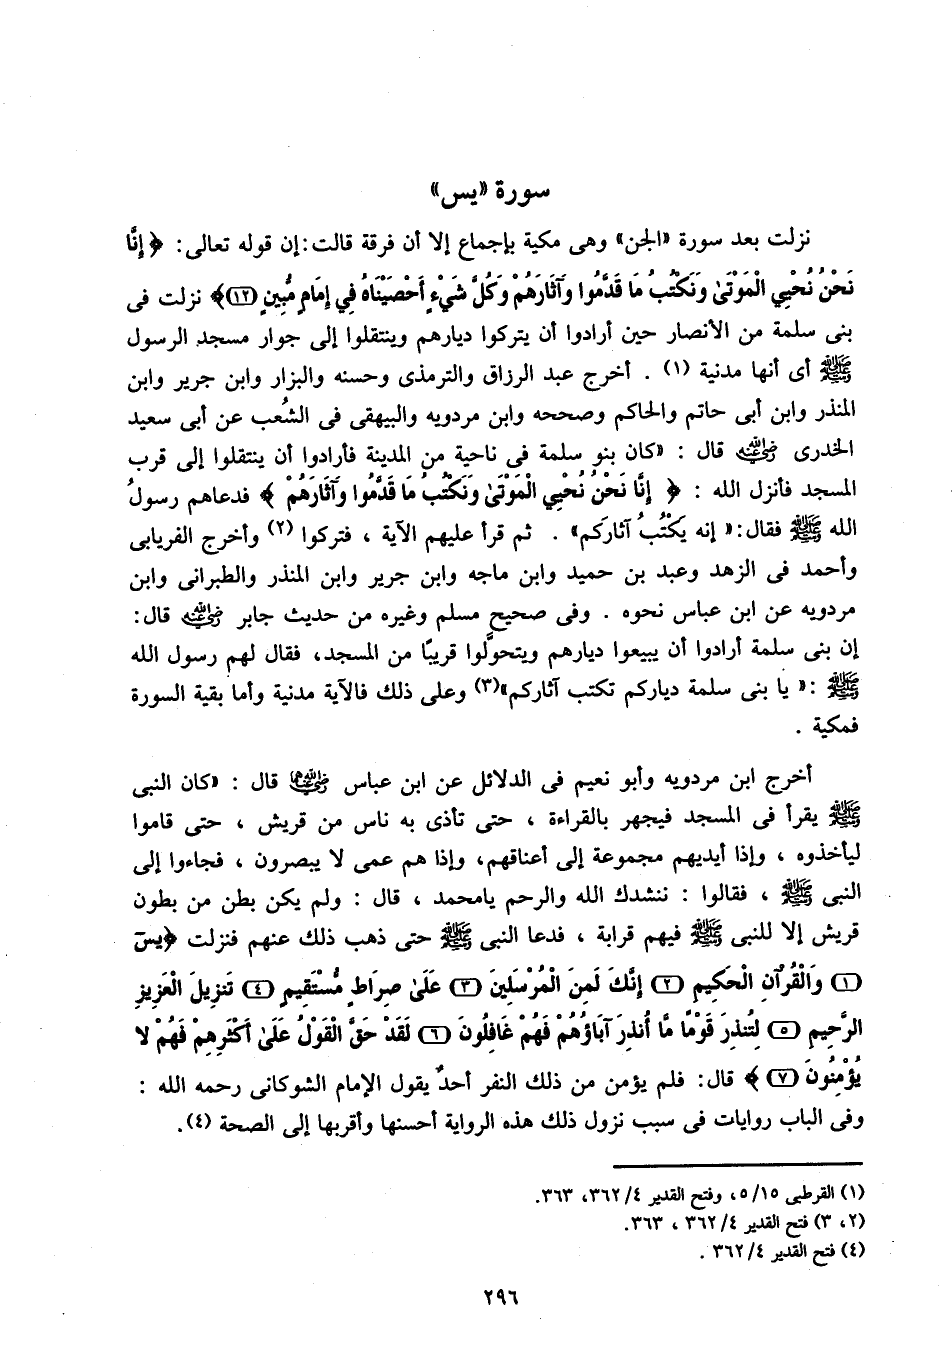 سورة «يس»
نزلت بعد سورة «الجن» وهى مكية بإجماع إلا أن فرقة قالت: إن قوله تعالى: ﴿ إِنَّا
نَحْنُ نُحْيِي الْمَوْتَىٰ وَنَكْتُبُ مَا قَدَّمُوا وَآثَارَهُمْ وَكُلَّ شَيْءٍ أَحْصَيْنَاهُ فِي إِمَامٍ مُّبِينٍ (١٢)﴾ نزلت فى
بنى سلمة من الأنصار حين أرادوا أن يتركوا ديارهم وينتقلوا إلى جوار مسجد الرسول
ﷺ أى أنها مدنية (١) . أخرج عبد الرزاق والترمذى وحسنه والبزار وابن جرير وابن
المنذر وابن أبى حاتم والحاكم وصححه وابن مردويه والبيهقى فى الشُعب عن أبى سعيد
الخدرى رضي الله عنه قال : «كان بنو سلمة فى ناحية من المدينة فأرادوا أن ينتقلوا إلى قرب
المسجد فأنزل الله : ﴿ إِنَّا نَحْنُ نُحْيِي الْمَوْتَىٰ وَنَكْتُبُ مَا قَدَّمُوا وَآثَارَهُمْ ﴾ فدعاهم رسولُ
الله ﷺ فقال: « إنه يَكْتُبُ آثارَكم» . ثم قرأ عليهم الآية ، فتركوا (٢) وأخرج الفريابى
وأحمد فى الزهد وعبد بن حميد وابن ماجه وابن جرير وابن المنذر والطبرانى وابن
مردويه عن ابن عباس نحوه . وفى صحيح مسلم وغيره من حديث جابر رضي الله عنه قال:
إن بنى سلمة أرادوا أن يبيعوا ديارهم ويتحولَّوا قريبًا من المسجد، فقال لهم رسول الله
ﷺ :« يا بنى سلمة دياركم تكتب آثاركم»(٣) وعلى ذلك فالآية مدنية وأما بقية السورة
فمكية .
أخرج ابن مردويه وأبو نعيم فى الدلائل عن ابن عباس رضي الله عنهما قال : «كان النبى
ﷺ يقرأ فى المسجد فيجهر بالقراءة ، حتى تأذى به ناس من قريش ، حتى قاموا
ليأخذوه ، وإذا أيديهم مجموعة إلى أعناقهم، وإذا هم عمى لا يبصرون ، فجاءوا إلى
النبى ﷺ ، فقالوا : ننشدك الله والرحم يامحمد ، قال : ولم يكن بطن من بطون
قريش إلا للنبى ﷺ فيهم قرابة ، فدعا النبى ﷺ حتى ذهب ذلك عنهم فنزلت ﴿يسٓ
(١) وَالْقُرْآنِ الْحَكِيمِ (٢) إِنَّكَ لَمِنَ الْمُرْسَلِينَ (٣) عَلَىٰ صِرَاطٍ مُّسْتَقِيمٍ (٤) تَنزِيلَ الْعَزِيزِ
الرَّحِيمِ (٥) لِتُنذِرَ قَوْمًا مَّا أُنذِرَ آبَاؤُهُمْ فَهُمْ غَافِلُونَ (٦) لَقَدْ حَقَّ الْقَوْلُ عَلَىٰ أَكْثَرِهِمْ فَهُمْ لا
يُؤْمِنُونَ (٧) ﴾ قال: فلم يؤمن من ذلك النفر أحدٌ يقول الإمام الشوكانى رحمه الله :
وفى الباب روايات فى سبب نزول ذلك هذه الرواية أحسنها وأقربها إلى الصحة (٤).
(١) القرطبى ٥/١٥، وفتح القدير ٣٦٢/٤، ٣٦٣.
(٢، ٣) فتح القدير ٣٦٢/٤ ، ٣٦٣.
(٤) فتح القدير ٣٦٢/٤ .
٢٩٦